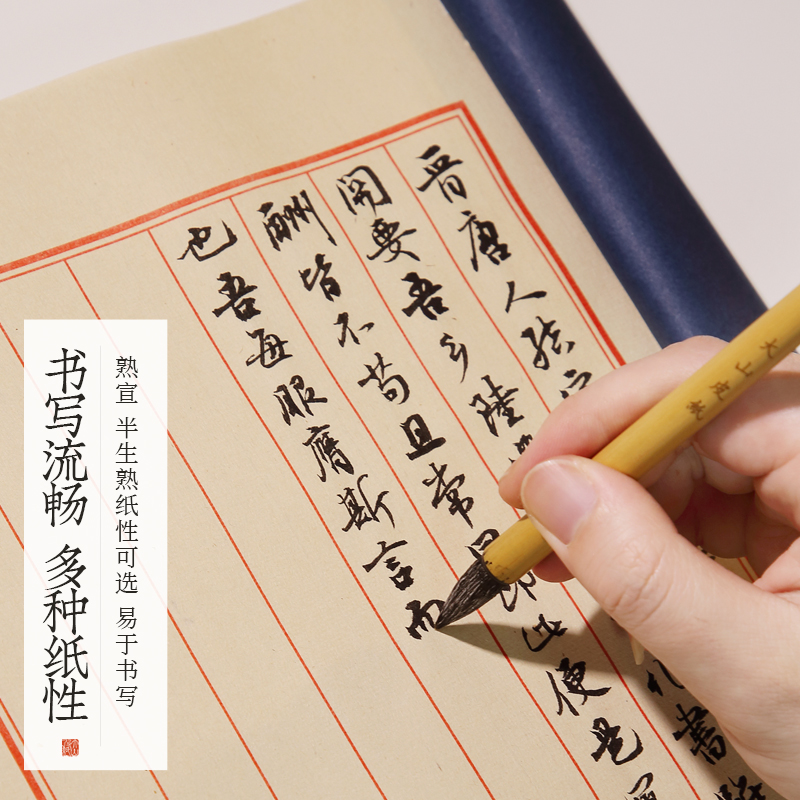 晋唐人結字
関要吾乡陸
書雖
酬皆不苟且常曰即此便是
也吾每服膺斯言而
书写流畅 多种纸性
熟宣 半生熟纸性可选 易于书写